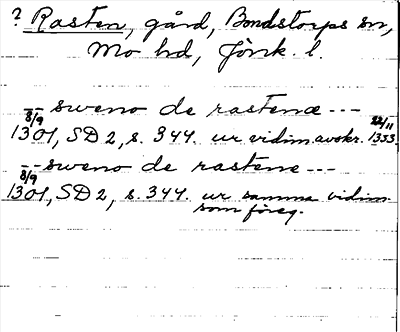 ? Rasten, gård, Bondstorps sn,
Mo hd, Jönk. l.
-- sweno de rastenæ ---
8/9 1301, SD 2, s. 344. ur vidim. avskr. 22/11 1333.
-- sweno de rastene ---
8/9 1301, SD 2, s. 344. ur samma vidim.
som föreg.